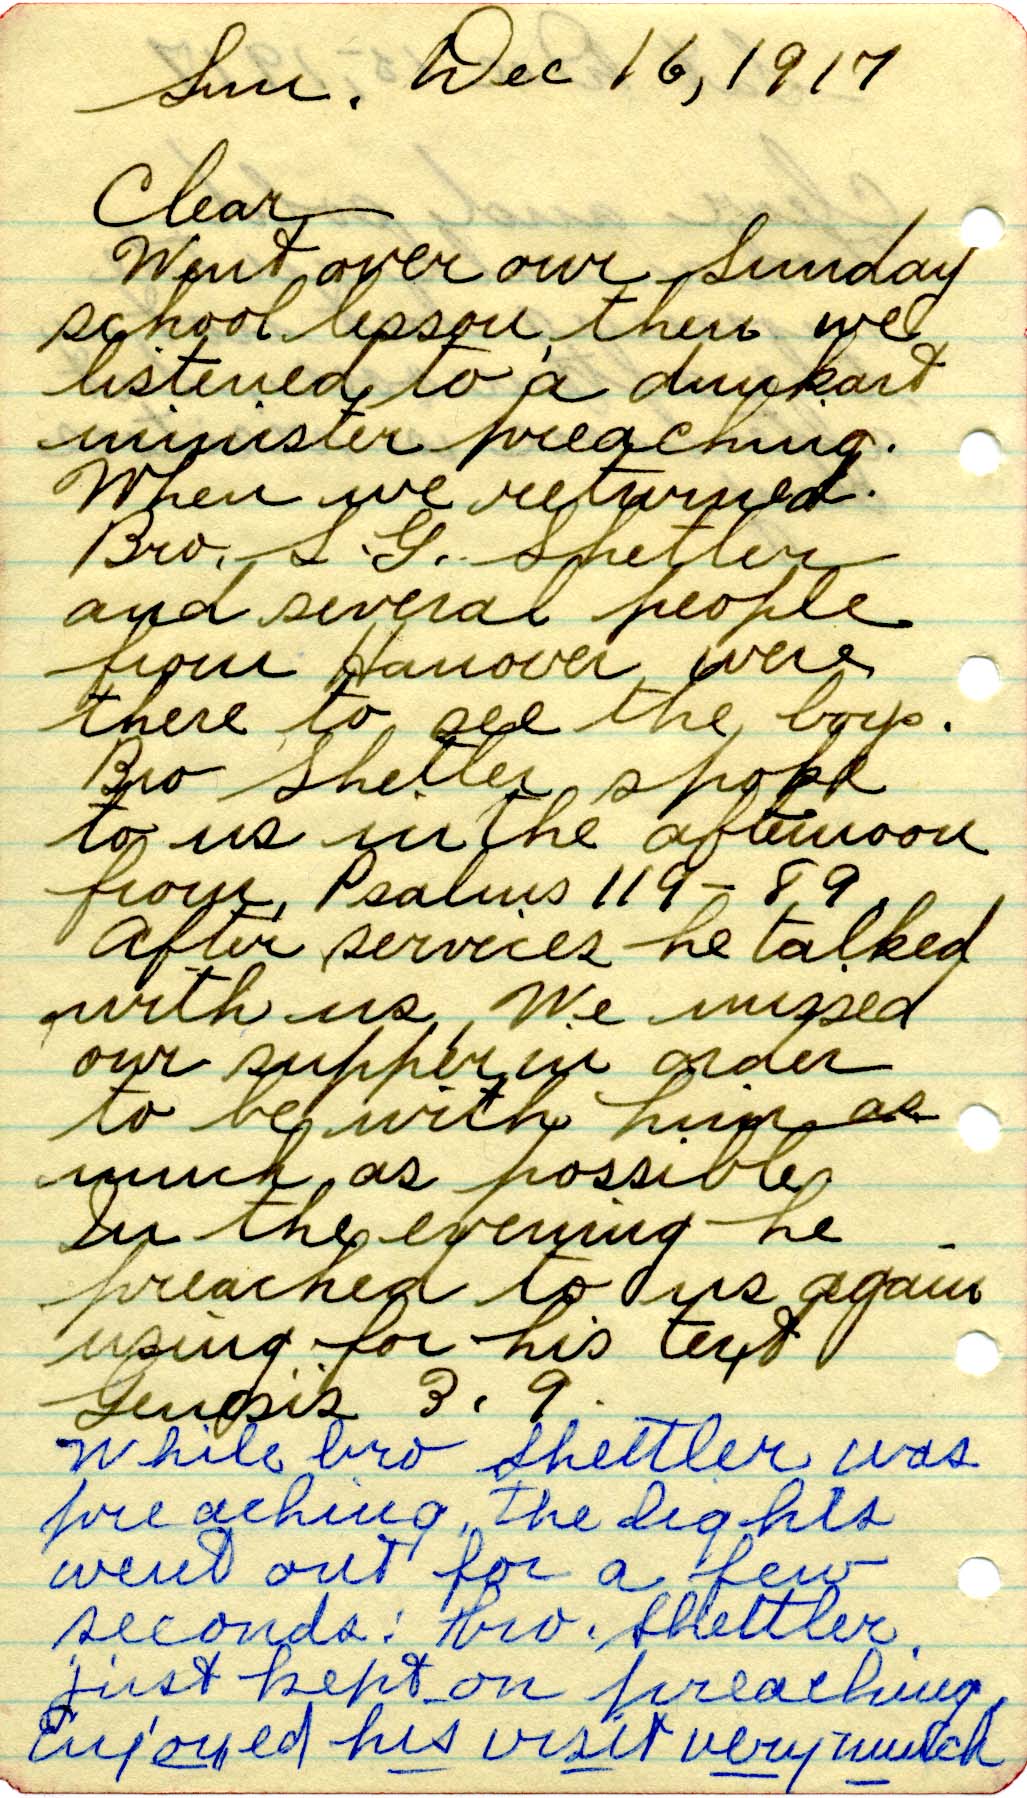 Sun. Dec 16, 1917
Clear
Went over our Sunday
school lesson, then we
listened to a dunkard
minister preaching.
When we returned.
Bro. S. G. Shetler
and several people
from Hanover were
there to see the boys.
Bro Shetler spoke
to us in the afternoon
from Psalms 119-89.
After services he talked
with us, We missed
our supper in order
to be with him as
much as possible
In the evening he
preached to us again
using for his text
Genesis 3.9.
While bro Shettler was
preaching, the lights
went out for a few
seconds: bro. Shettler
just kept on preaching,
Enjoyed his visit very much